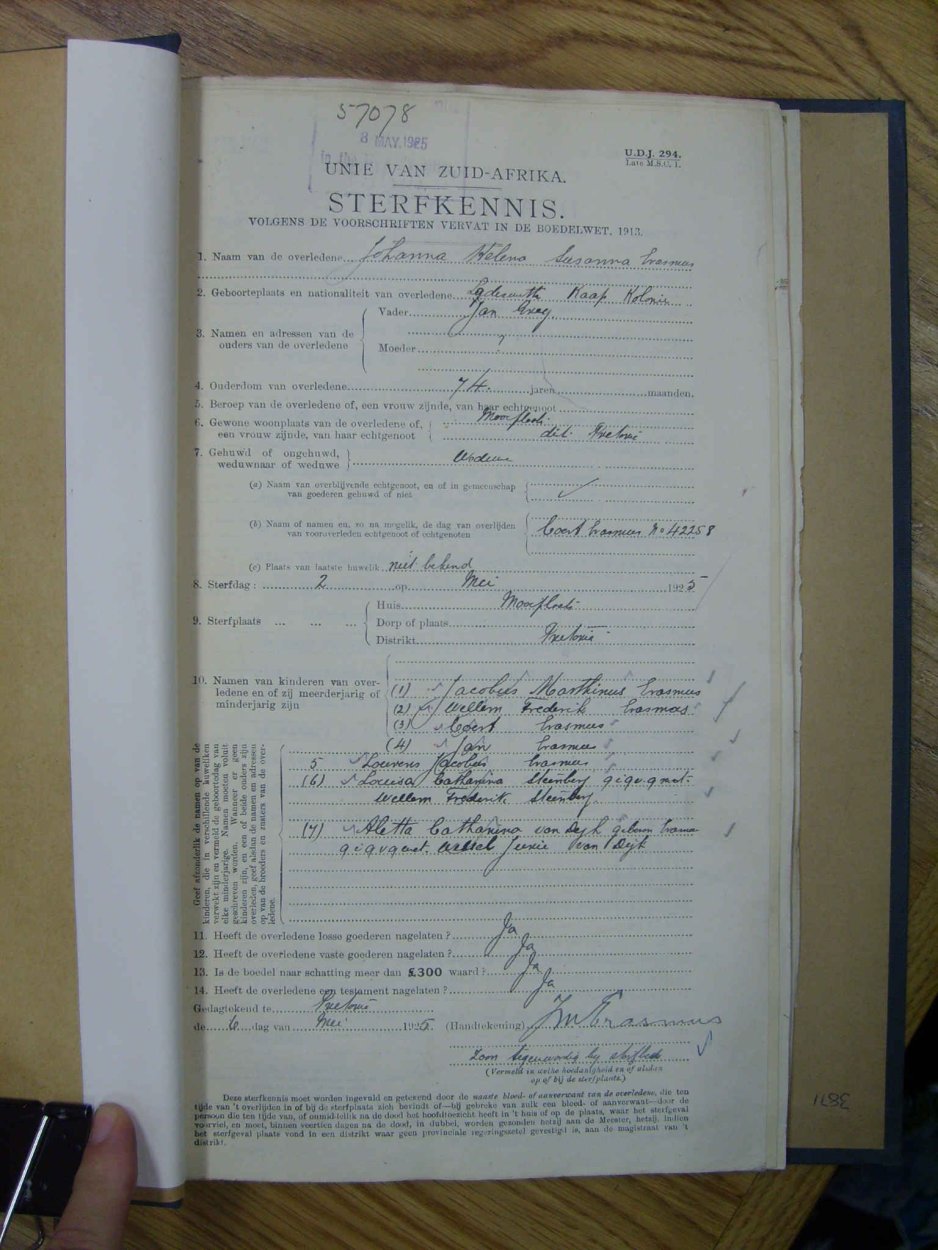 57078
8 MAY. 1925
U.D.J. 294.
Late M.S.C. 1.
UNIE VAN ZUID-AFRIKA.
STERFKENNIS.
VOLGENS DE VOORSCHRIFTEN VERVAT IN DE BOEDELWET, 1913.
1. Naam van de overledene Johanna Helena Susanna Erasmus
2. Geboorteplaats en nationaliteit van overledene Kaap Kolonie
3. Namen en adressen van de ouders van de overledene
Vader Jan
Moeder ?
4. Ouderdom van overledene 74 jaren maanden.
5. Beroep van de overledene of, een vrouw zijnde, van haar echtgenoot
6. Gewone woonplaats van de overledene of, Mooiplaats
een vrouw zijnde, van haar echtgenoot dist. Pretoria
7. Gehuwd of ongehuwd, weduwnaar of weduwe Weduwe
(a) Naam van overblijvende echtgenoot, en of in gemeenschap
van goederen gehuwd of niet
(b) Naam of namen en, zo na mogelik, de dag van overlijden
van vooroverleden echtgenoot of echtgenoten Coert Erasmus No 42258
(c) Plaats van laatste huwelik niet bekend
8. Sterfdag: 2 op Mei 1925
9. Sterfplaats ... ... ...
Huis Mooiplaats
Dorp of plaats
Distrikt Pretoria
10. Namen van kinderen van over-
ledene en of zij meerderjarig of
minderjarig zijn
(1) Jacobus Marthinus Erasmus
(2) Willem Frederik Erasmus
(3) Coert Erasmus
(4) Jan Erasmus
5 Lourens Jacobus Erasmus
(6) Louisa Catharina Steenberg g.i.g.v.g. met
Willem Frederik Steenberg
(7) Aletta Catharina van Dyk geboren Erasmus
g.i.g.v.g. met. Wessel van Dyk
Geef afzonderlik de namen op van de
kinderen, die in verschillende huweliken
verwekt zijn en vermeld de geboortedag van
elke minderjarige. Namen moeten voluit
geschreven worden. Wanneer er geen
kinderen zijn, en een of beide ouders zijn
overleden, geef alsdan de namen en adressen
op van de broeders en zusters van de over-
ledene.
11. Heeft de overledene losse goederen nagelaten? Ja
12. Heeft de overledene vaste goederen nagelaten? Ja
13. Is de boedel naar schatting meer dan £300 waard? Ja
14. Heeft de overledene een testament nagelaten? Ja
Gedagtekend te Pretoria
de 6 dag van Mei 1925 (Handtekening) J M Erasmus
Zoon tegenwoordig by sterfbed
(Vermeld in welke hoedanigheid en of alsdan
op of bij de sterfplaats.)
Deze sterfkennis moet worden ingevuld en getekend door de naaste bloed- of aanverwant van de overledene, die ten
tijde van 't overlijden in of bij de sterfplaats zich bevindt of—bij gebreke van zulk een bloed- of aanverwant—door de
persoon die ten tijde van, of onmiddellik na de dood het hoofdtoezicht heeft in 't huis of op de plaats, waar het sterfgeval
voorviel, en moet, binnen veertien dagen na de dood, in dubbel, worden gezonden hetzij aan de Meester, hetzij, indien
het sterfgeval plaats vond in een distrikt waar geen provinciale regeringszetel gevestigd is, aan de magistraat van 't
distrikt.
3871